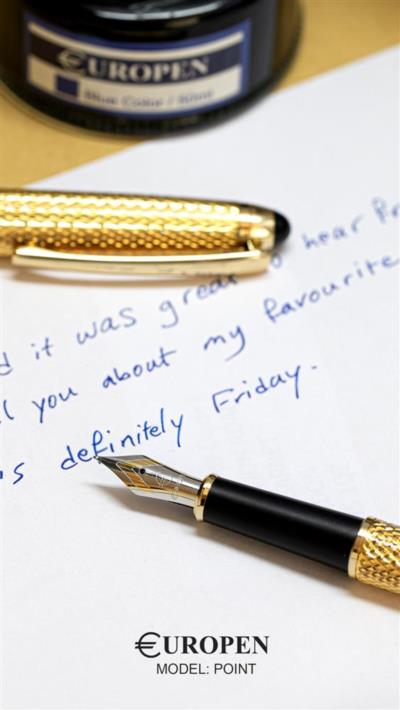 €UROPEN
Blue Color / 60ml
d it was great to hear fr
ll you about my favourite
is definitely Friday.
€UROPEN
MODEL: POINT